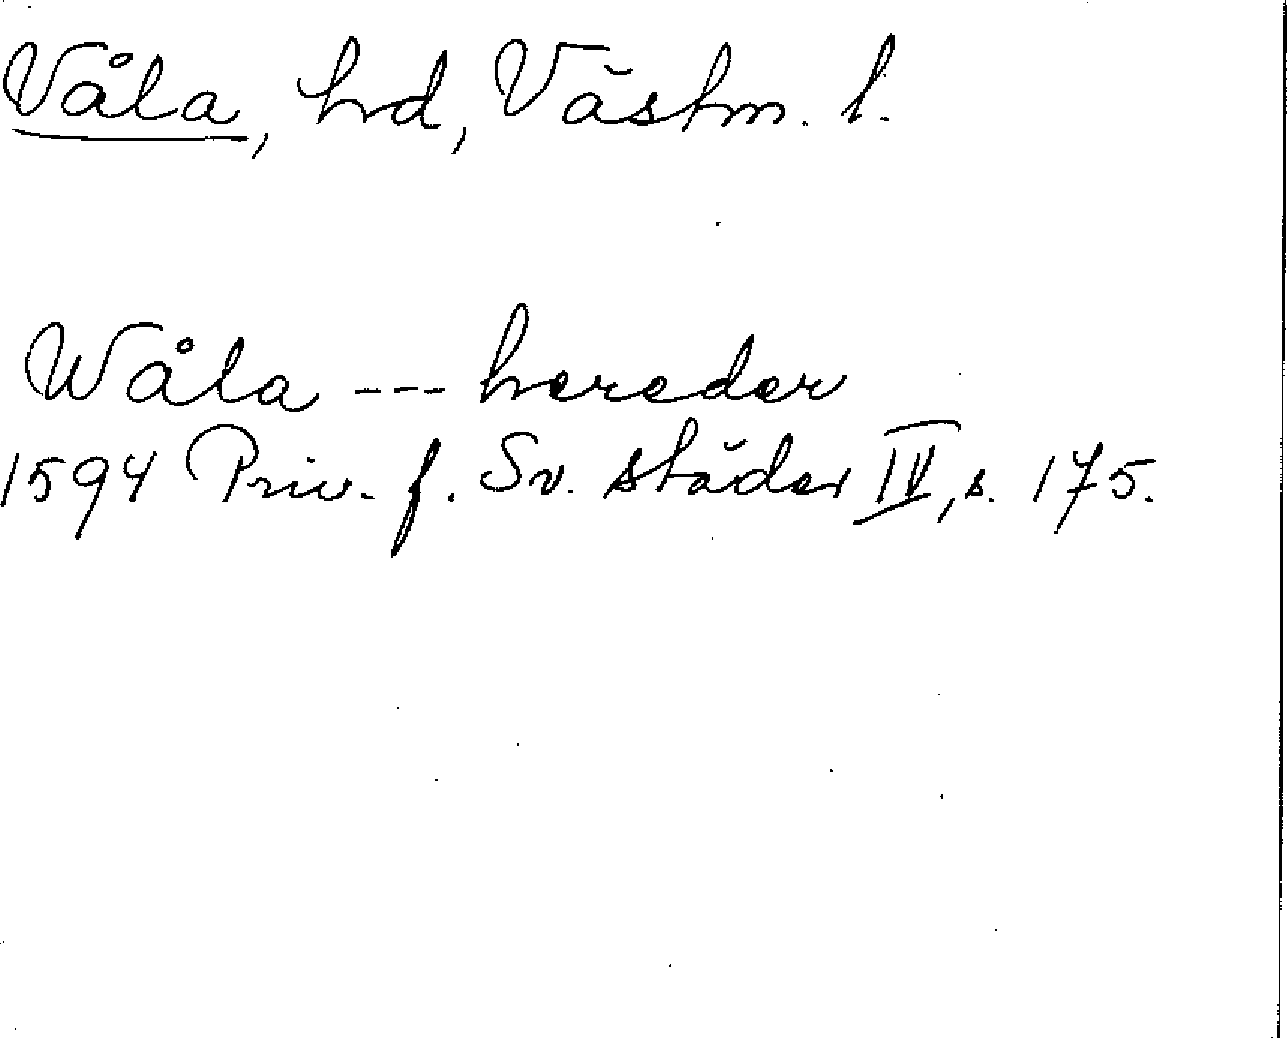 Våla, hd, Västm. l.
Wåla --- hereder
1594 Priv. f. Sv. städer IV, s. 175.